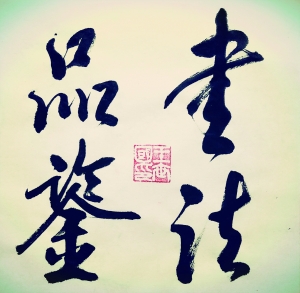 書法
品鑒